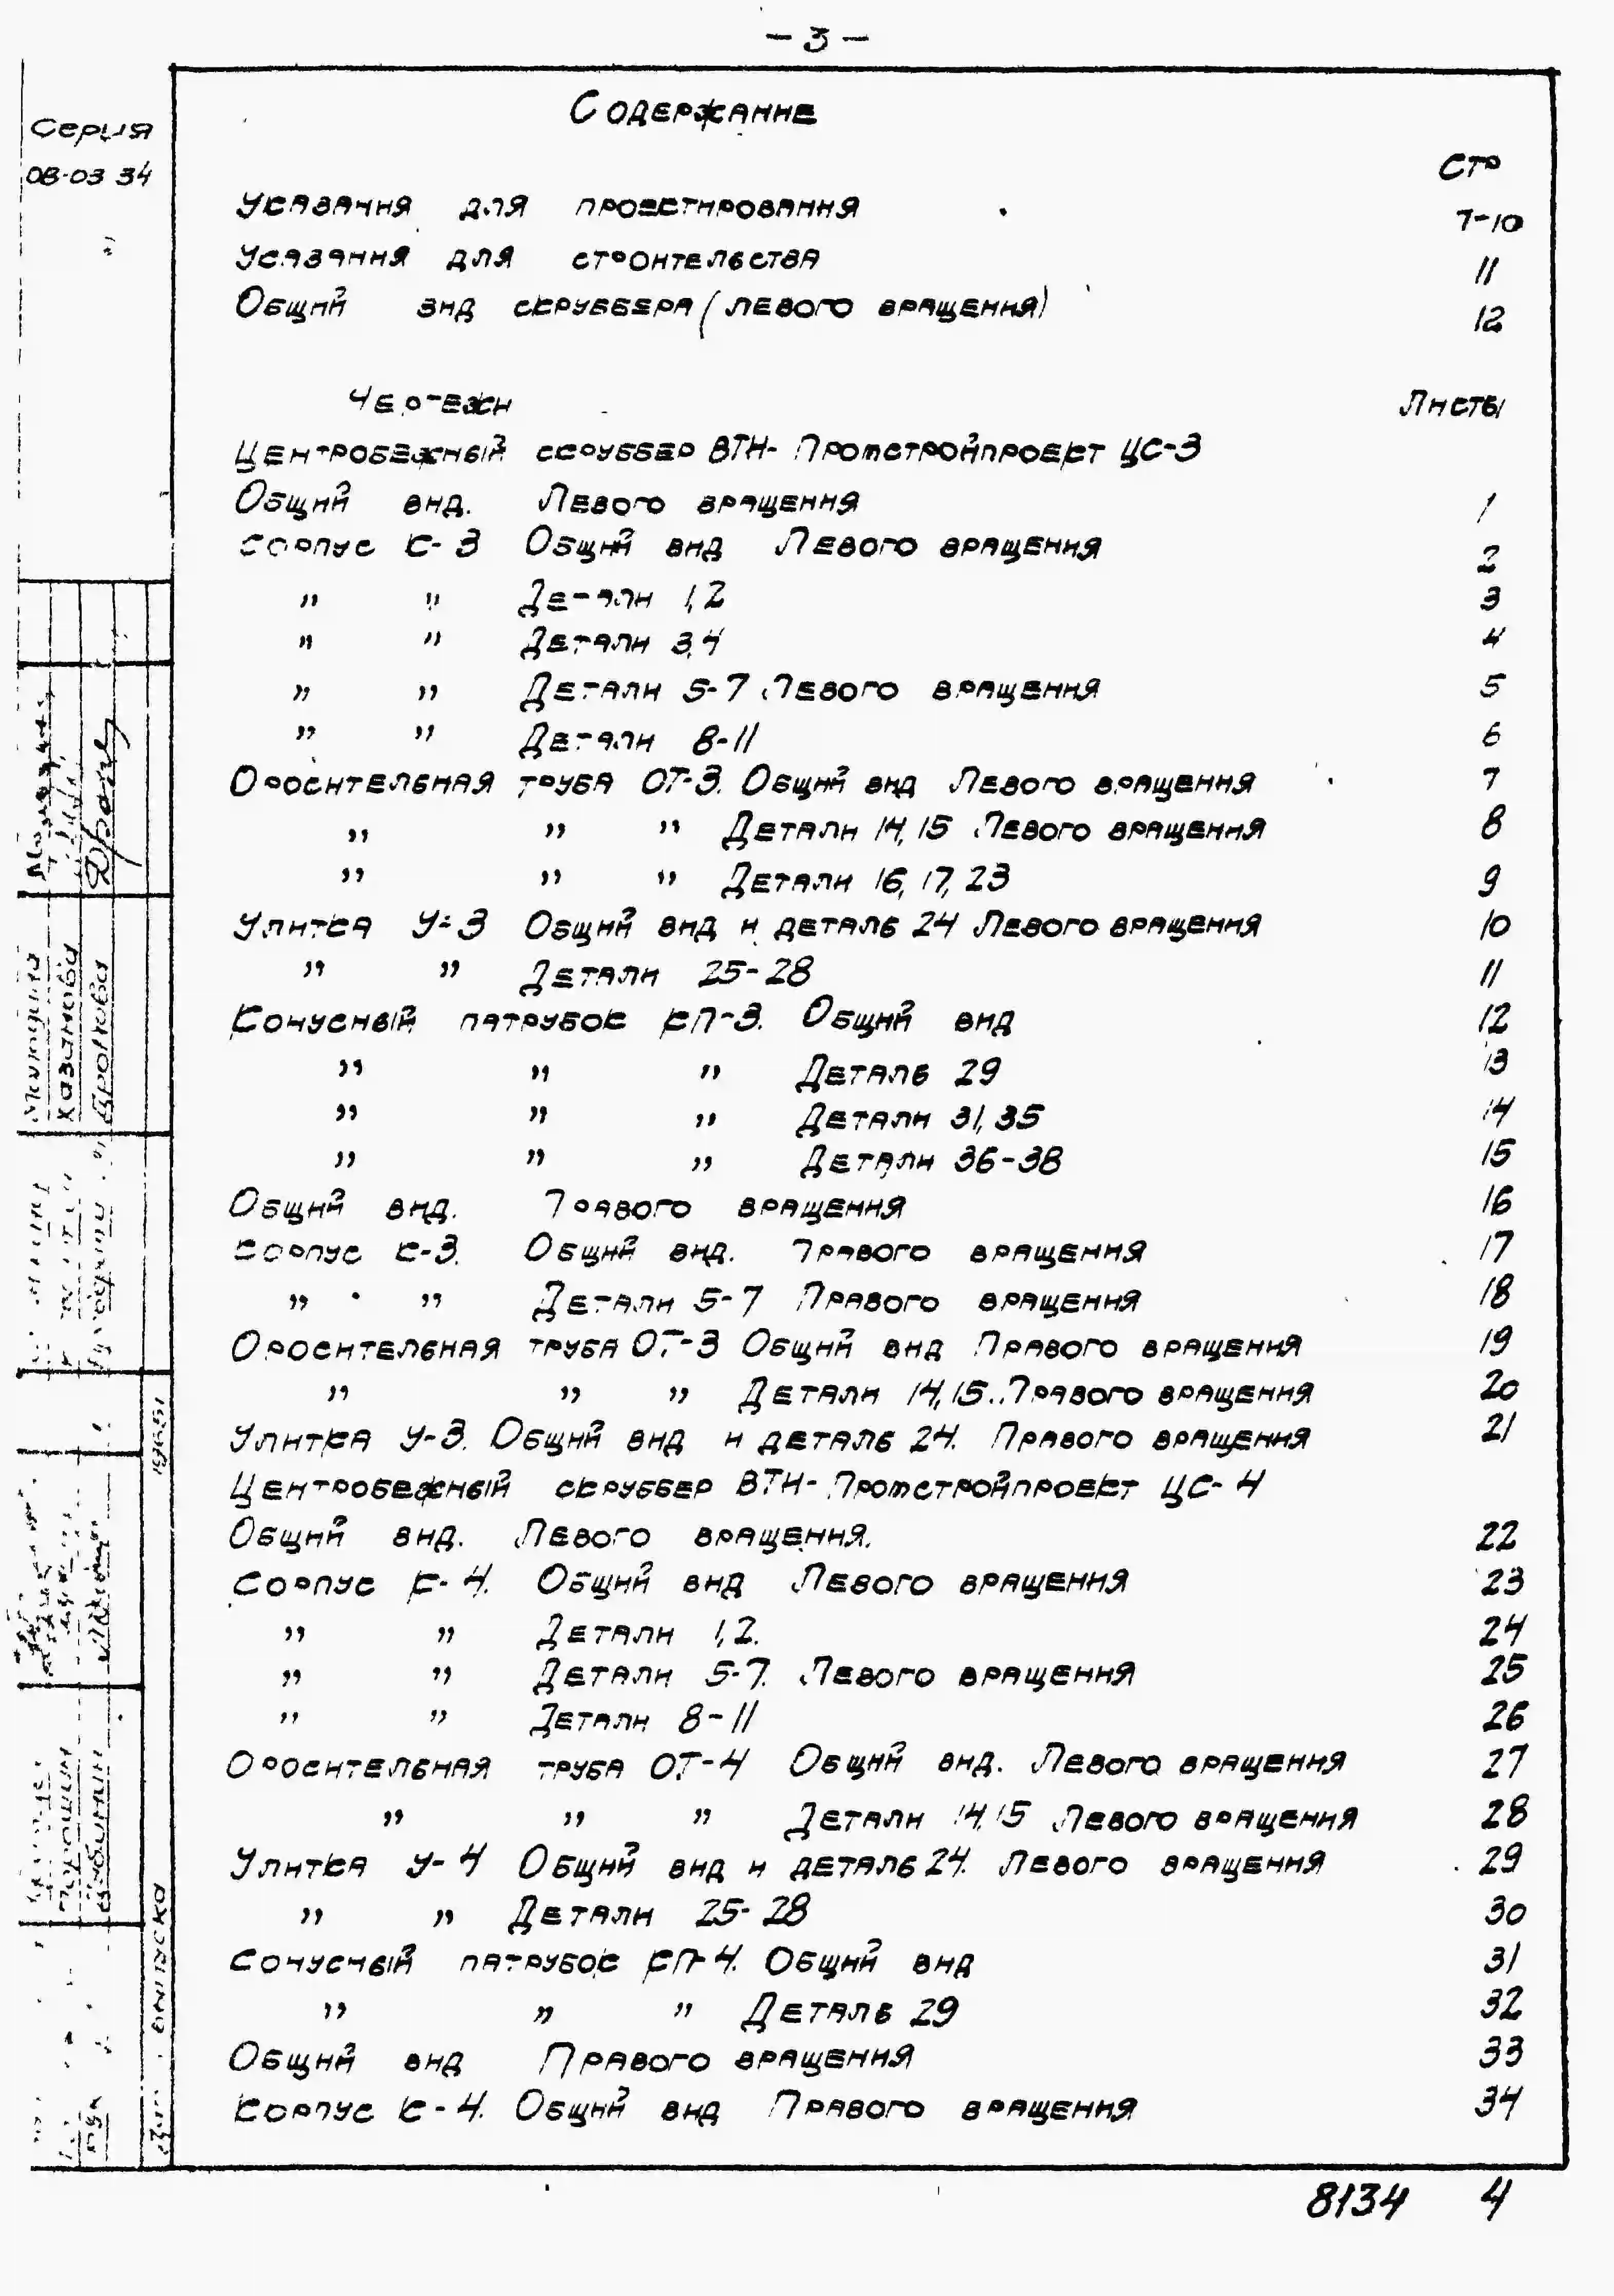 - 3 -
Серия
ОВ-03 34
Содержание
Стр
Указания для проектирования 7-10
Указания для строительства 11
Общий вид скруббера (левого вращения) 12
Чертежи Листы
Центробежный скруббер ВТИ-Промстройпроект ЦС-3
Общий вид. Левого вращения 1
Корпус К-3 Общий вид Левого вращения 2
" " Детали 1,2 3
" " Детали 3,4 4
" " Детали 5-7 Левого вращения 5
" " Детали 8-11 6
Оросительная труба ОТ-3. Общий вид Левого вращения 7
" " " Детали 14,15 Левого вращения 8
" " " Детали 16, 17, 23 9
Улитка У-3 Общий вид и деталь 24 Левого вращения 10
" " Детали 25-28 11
Конусный патрубок КП-3. Общий вид 12
" " " Деталь 29 13
" " " Детали 31, 35 14
" " " Детали 36-38 15
Общий вид. Правого вращения 16
Корпус К-3. Общий вид. Правого вращения 17
" " Детали 5-7 Правого вращения 18
Оросительная труба ОТ-3 Общий вид Правого вращения 19
" " " Детали 14,15. Правого вращения 20
Улитка У-3. Общий вид и деталь 24. Правого вращения 21
Центробежный скруббер ВТИ-Промстройпроект ЦС-4
Общий вид. Левого вращения. 22
Корпус К-4. Общий вид Левого вращения 23
" " Детали 1,2. 24
" " Детали 5-7. Левого вращения 25
" " Детали 8-11 26
Оросительная труба ОТ-4 Общий вид. Левого вращения 27
" " " Детали 14,15 Левого вращения 28
Улитка У-4 Общий вид и деталь 24. Левого вращения 29
" " Детали 25-28 30
Конусный патрубок КП-4. Общий вид 31
" " " Деталь 29 32
Общий вид Правого вращения 33
Корпус К-4. Общий вид Правого вращения 34
Казанова
Дронова
1965г
выпуска
8134 4